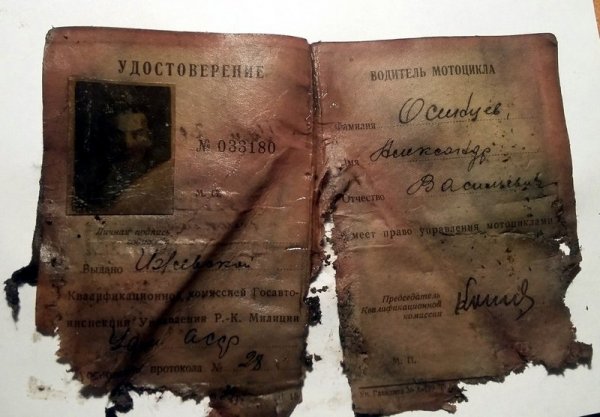 УДОСТОВЕРЕНИЕ
№ 033180
М. П.
Личная подпись
Выдано Ижевской
Квалификационной комиссией Госавто-
инспекции Управления Р.-К. Милиции
Удм АССР
протокола № 28
ВОДИТЕЛЬ МОТОЦИКЛА
Фамилия
Имя Александр
Отчество Васильевич
Имеет право управления мотоциклами
Председатель
Квалификационной
комиссии
М. П.